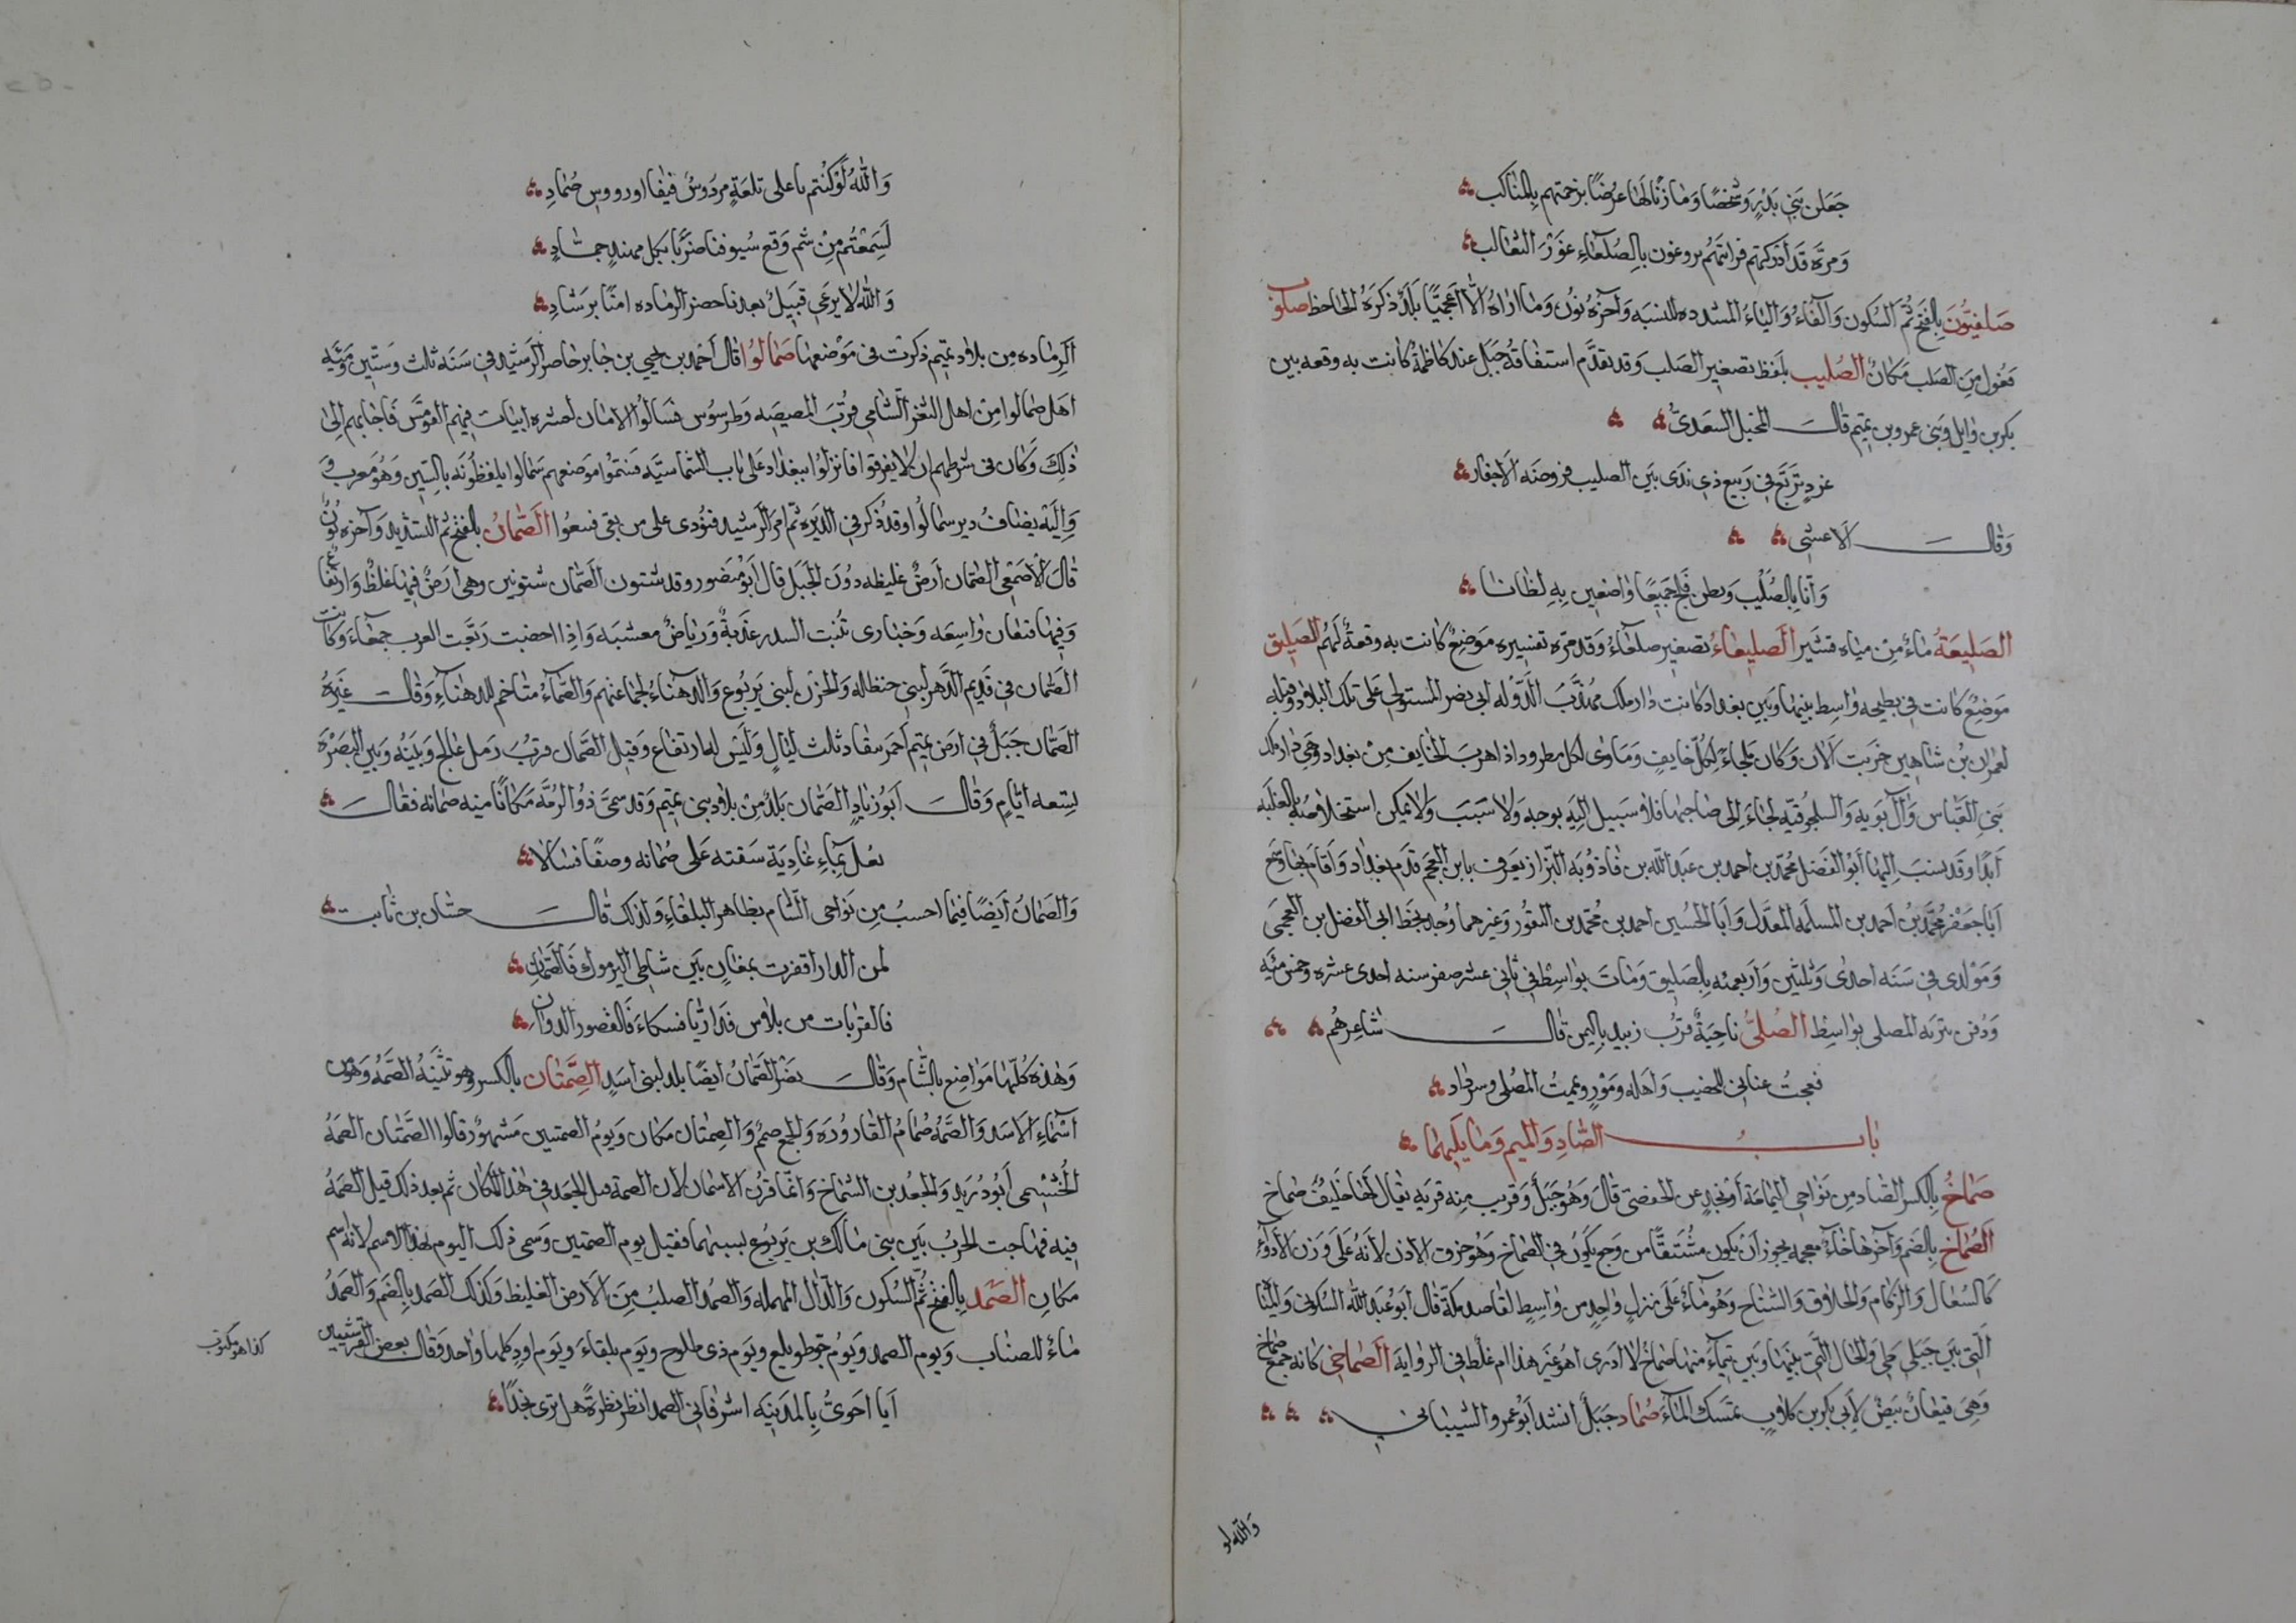 جَعَلن بَنِي بَدْرٍ وَشَخصًا وَمازنًا لَها عرضًا يزحمتهم بِالمناكب
وَمرة قَد أدركتهم فرايتهم يروغون بِالصلعَاءِ عَوذَ الثعالب
صَلفيُّونَ بِالفَتح ثُمَّ السكون وَالفاء وَالياء المشدده للنسبه وَآخره نُون وَمَا اراه الا أعجميًّا بَلَد ذكره الجاحظ صلوب
فعول مِنَ الصلب مَكان الصُليب بلَفظ تصغير الصَلب وَقد تقدَّم استقاقه جَبَل عند كاظمة كانت به وقعه بين
بكر بن وايل وبني عمرو بن تميم قال المخبل السعدي
غرد تربع في ربيع ذي ندى بَين الصليب فروضه الاجفار
وقال الاعشى
وَانا بالصُلَيب وبطن فلج جَميعًا واضعين بِهِ لظانا
الصَليعَةُ ماء مِنْ مياه قشير الصُليعاءُ تصغير صلعاء وقد مره تفسيره مَوضعٌ كانت به وقعة لَهُم الصليق
مَوضعٌ كانت في بطيحه واسط بينها وبين بغداد كانت دار ملك مهذّب الدَّوله ابي نصر المستولي على تلك البلاد وقبله
لعمران بن شاهين خربت الان وكان ملجاء لكلّ خايف وَمَاوى لكل مطرود اذا هرب الخايف مِن بغداد وَهي دار ملك
بني العَبّاس وَآل بَويه وَالسلجوقيّه لجاء الى صاحبها فلا سبيل اليه بوجه وَلا سَبَبَ وَلا يمكن استخلاصه بالغلبه
ابدا وقد نسب اليها أبُو الفَضل محمّد بن احمد بن عبد الله بن فاذوُيَه البزاز يَعرف بابن العجم قدم بغداد وَاقام بها وسَمع
ابا جَعْفر مُحَمَّد بن احمد بن المسلمه المعدّل وابا الحُسين احمد بن محمّد بن النقور وغيرهما وُجد بخط ابي الفضل بن العجمي
وَمَولدي في سَنَه احدى وثلثين وَاربعمئه بالصَليق ومَات بواسِط في ثاني عشر صفر سنه احدى عشره وخمسمئه
وَدُفن بتربه المصلى بواسِط الصُلىُّ ناحِيَة قرب زبيد باليمن قال شاعرهُم
فعجت عناني للحصيب وَاهله ومَوْر ويممت المُصلى وسردد
باب الصَّادِ وَالميم وَمَا يَليهمَا
صَماخُ بِالكسر الصاد مِن نَواحي اليمامَة أو نَجد عن الحفصي قالَ وَهُو جَبَل وَقريب منه قريَه يقال لها خليف صَماخ
الصُماخ بِالضَم وَآخرها خاء معجمه يجوز اَن يكون مُشتَقًّا من وجع يكون في الصماخ وَهُو خرق الاذن لانهُ على وَزن الادوآءِ
كَالسُعال وَالزكام وَالحلاق وَالشناح وَهُو مَاء على نزل واحِد من واسِط لقاصد مكة قال ابو عبد الله السكوني والمثنا
التي بَين جَبَلى طي وَالجَال التي بينها وبين تيماء منها صُماخ لا ادرى اهُو غير هذا ام غلط في الرواية الصُماخي كانه جمع صماخ
وَهِيَ قيعان بيض لأبي بكر بن كلاب تمسك الماء صُماد جَبَل انشد ابو عمرو الشيباني
والله لو
وَاللهُ لَوْ كنتم باعلى تلعَة من رَوُس فيفا او رووسِ صُمادِ
لَسَمعتُم مِنْ ثم وَقع سُيوفنا ضَربًا بكل مهند جمادِ
وَالله لا يرعى قبيل بعدنا خضر الرماده امنًا برشادِ
الرماده مِن بلاد تميم ذكرت في مَوضعها صَمَالُوا قال احمد بن يحيى بن جابر حاصر الرشيد في سَنَه ثلث وستّين ومئه
اهل صمالوا مِن اهل الثغر الشامي قرُبَ المصيصَه وطرسوُس فسَالُوا الامان لعشره ابيات فيهم القومس فاجابهم الى
ذلِكَ وَكان في شرطهم ان لا يفرقوا فانزلوا ببغداد على باب الشماسيّه فسموا موضعهم سَمالوا يلفظُونه بالسّين وَهُو معروف
وَاليه يضاف دير سمالُوا وقد ذُكر في الديره ثم امر الرشيد فنودى على من بقى فبيعُوا الصَّمانُ بالفتح ثم التشديد وَآخره نُونٌ
قالَ الأصمعي الصَّمان ارضٌ غليظه دُونَ الجَبَل قال ابو منصور وقد شتون الصَّمان شتوتين وهي ارض فيها غلظ وَارتفاع
وَفيها قيعان واسِعَه وَخبارى تنبت السدر عذبة وَرياض معشبَه وَاذا اخصبت رَبّعت العرب جمعاء وَكانت
الصَّمان في قديم الدّهر لبني حنظله وَالحزن لبني يَربُوع وَالدهناءُ لجماعتهم وَالصَّمان متاخم للدهناء وَقال غيره
الصَّمان جَبَل في ارض تميم احمر ينقاد ثلث ليال وَلَيس لهُ ارتفاع وَقيل الصَّمان قرب رمل عالج وَبينه وَبين البصره
تسعه ايّام وَقال ابو زياد الصَّمان بَلد مِن بلاد بني تميم وقد سمى ذو الرمّه مَكانًا منه صَمانه فقال
يعُل بماء غاديَة سقته على صُمانه وصفًا فسالا
وَالصَّمانُ ايضًا فيما احسبُ مِن نَواحي الشّام بظاهر البلقاءِ وَلذلك قال حسّان بن ثابت
لمن الدار اقفرت بمعان بَين شاطي اليرموك فالصَّمان
فالقريات من بلاس فداريا فسكاء فالقصور الدوان
وَهٰذه كُلّها مَوَاضع بالشّام وَقال نصر الصَّمانُ ايضًا بلد لبني اسَدِ الصِّمَّتان بالكسر وهو تثنيَهُ الصمَّه وَهُو من
اسْماءِ الاسَد وَالصمَّه صُمامُ القاروُرَه وَالجمع صمم وَالصِمتان مكان وَيومُ الصمتين مَشهور قالوا الصّمّتان الصمّه
الجُشمى ابو دُريد وَالجعد بن الشماخ وَانما قرن الاسمان لان الصمة قتل الجعد في هٰذا المكان ثم بعد ذلك قيل الصمّه
فيه فهاجت الحربُ بَين بني مَالك بن يَربُوع بسببهما فقيل يوم الصمتين وَسمى ذلك اليوم بهذا الاسم لانهُ اسم
مكان الصَمد بالفتح ثُمَّ السُكون وَالدّال المهمله وَالصُمد الصلبُ مِنَ الارض الغليظ وَكذلك الصمد بالضَم والصمدُ
مَاءٌ للضباب وَيوم الصمد وَيوُم جو طويلع ويوَم ذي طلوح ويوم بلقاءَ ويوَم اود كلها واحد وَقال بعض القرشيين
كذا هو مكتوب
اَيا احَوىّ بِالمَدينَه اشرفا لى الصمد انظر نظرةً هل ترى نجدًا